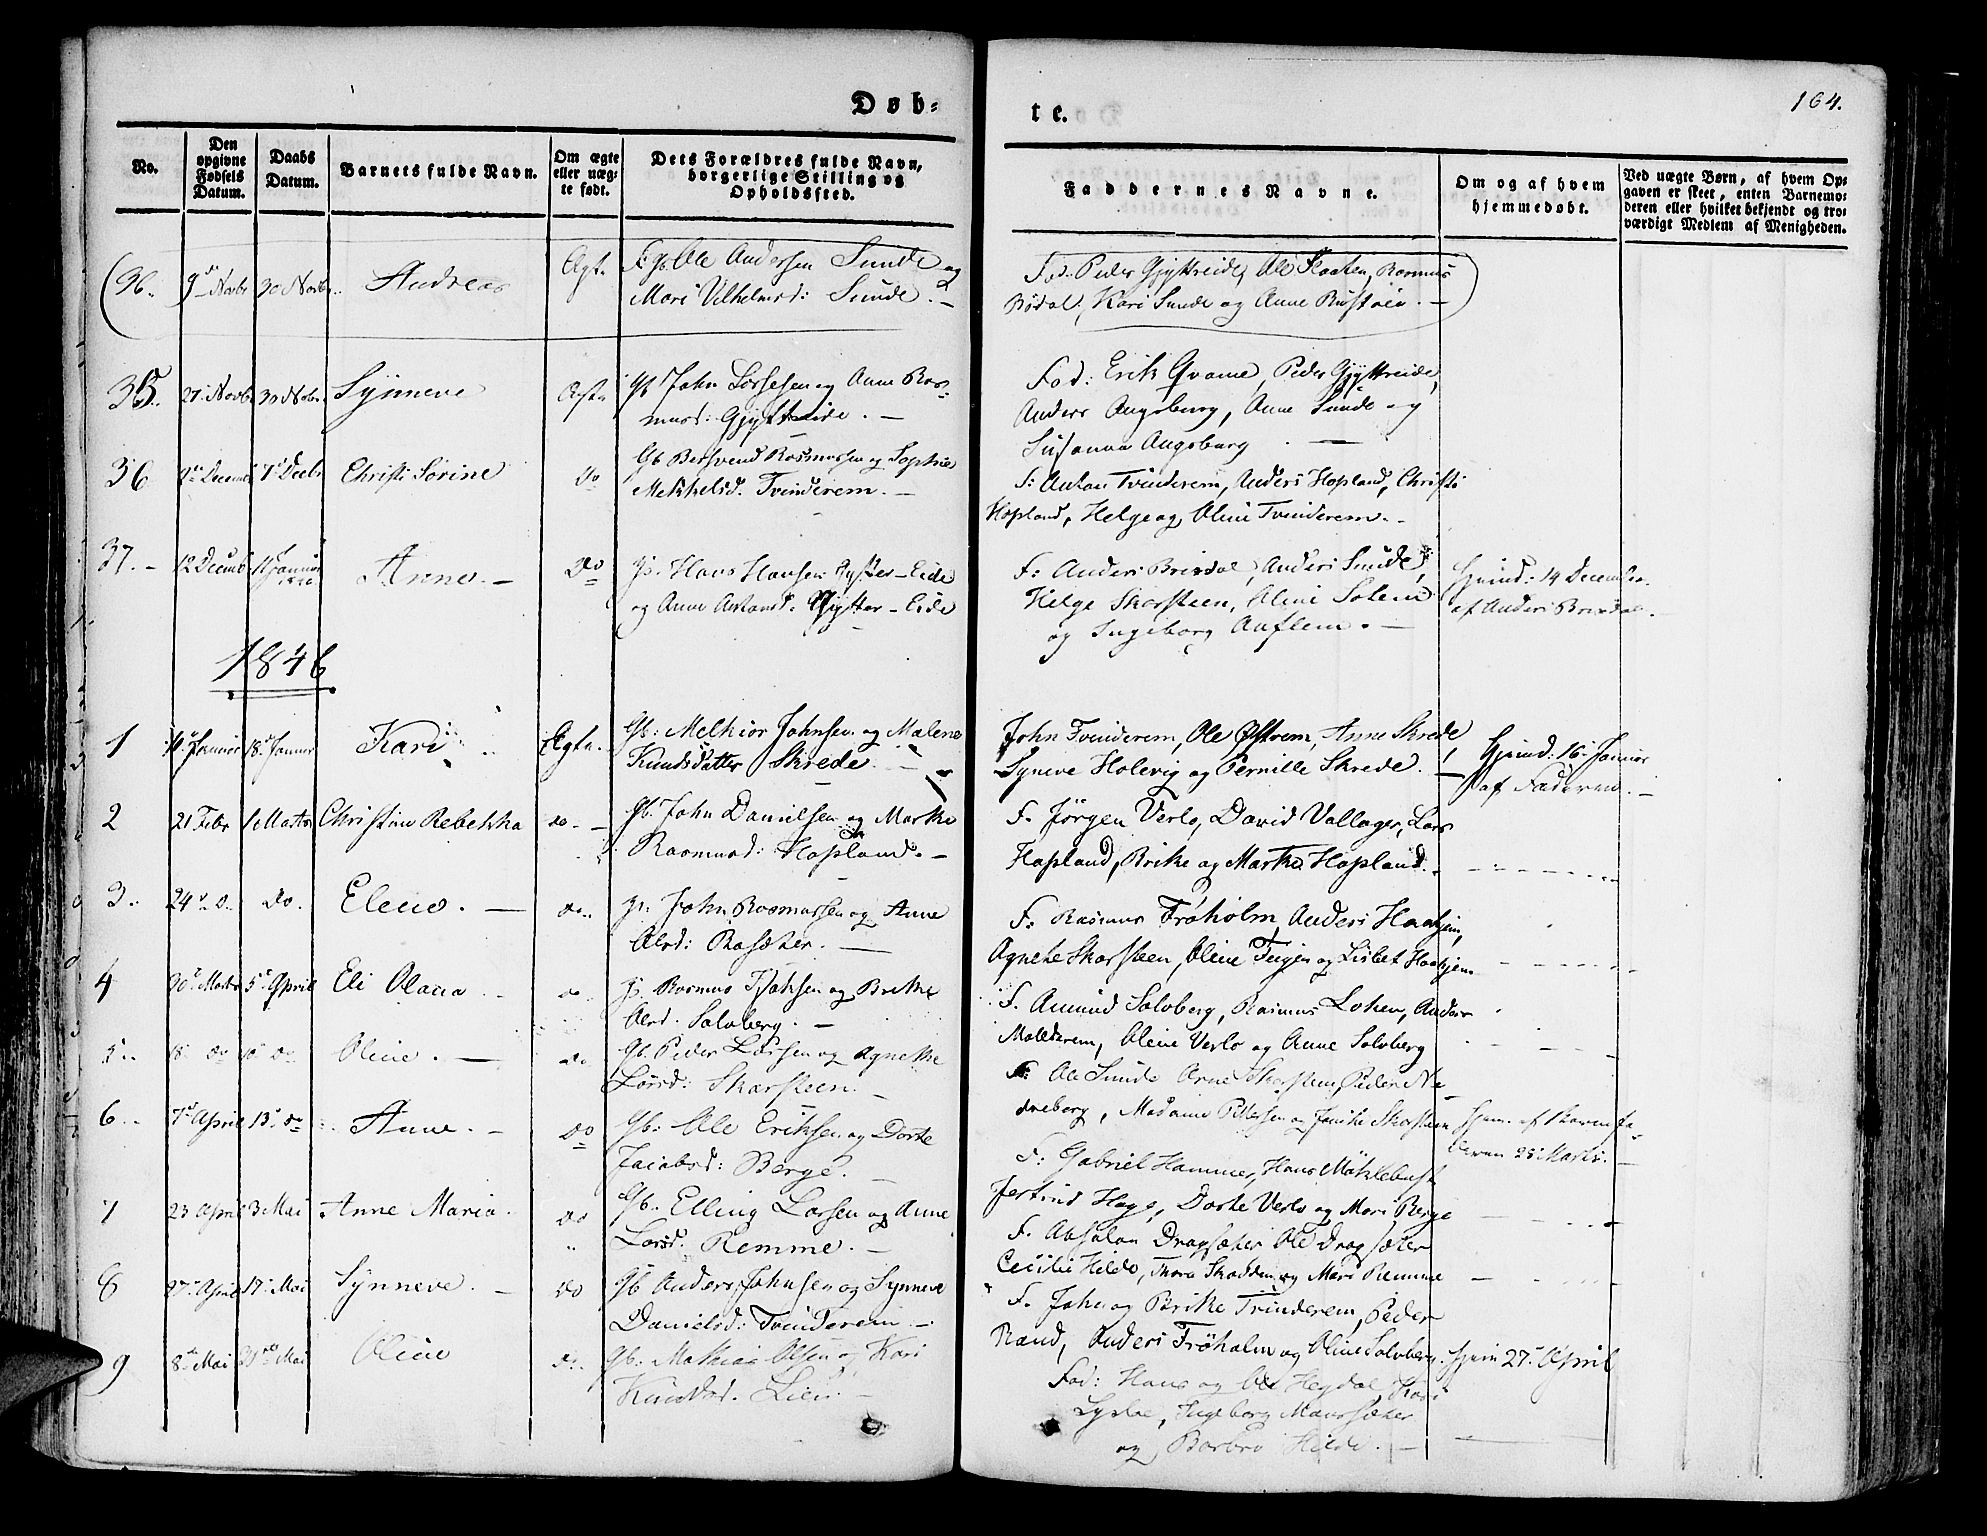 Døb-
te.
164.
No.
Den opgivne Fødsels Datum.
Daabs Datum.
Barnets fulde Navn.
Om ægte eller uægte født.
Dets Forældres fulde Navn, borgerlige Stilling og Opholdssted.
Faddernes Navne.
Om og af hvem hjemmedøbt.
Ved uægte Børn, af hvem Opgaven er skeet, enten Barnemoderen eller hvilket bekjendt og troværdigt Medlem af Menigheden.
36. 9de Novbr 30 Novbr. Andreas Ægte Ole Andersen Sunde og
Mari Vilhelmsd: Sunde. -
Fad: Peder Gjyttreide, Ole Flaaten, Rasmus
Bødal, Kari Sunde og Anne Rustøen. -
35. 27. Novb 30 Novbr. Synneve Ægte Gb John Larsesen og Anne Ras-
musd: Gjyttreide. -
Fad: Erik Qvame, Peder Gjyttreide,
Anders Augsburg, Anne Sunde og
Susanna Augsburg. -
36 2de Decemb 7de Decbr Christi Sørine do Gb Bersvend Rasmussen og Sophie
Mekkelsd. Tvinderem. -
F: Anton Tvinderem, Anders Hopland, Christi
Hopland, Helge og Oline Tvinderem. -
37. - 12 Decemb 11 Januar 1846 Anne. - do Hans Hansen Gytter-Eide
og Anne Antonsd: Gjytter-Eide
F: Anders Brisdal, Anders Sunde,
Helge Skarsteen, Oline Solem
og Ingeborg Auflem. -
Hjemd: 14 December
af Anders Brisdal. -
1846
1 11 Januar 18 Januar Kari Ægte. Gb: Melkior Johnsen og Malene
Knudsdatter Skrede. -
John Tvinderem, Ole Østrem, Anne Skrede,
Synneve Holevig og Pernille Skrede. -
Hjemd: 16 Januar
af Faderen. -
2 21 Febr 1 Marts Christine Rebekka do. - Gb. John Danielsen og Marthe
Rasmusd: Hopland. -
F. Jørgen Verlo, David Vallager, Lars
Hopland, Brithe og Marthe Hopland.
3. 24 do. do. Eleno. - do. John Rasmussen og Anne
Olsd: Rasæter. -
F: Rasmus Frøholm, Anders Haahjem,
Agnethe Skarsteen, Oline Teigen og Lisbet Haahjem
4 30 Marts 5 April Eli Olava do. Rasmus Isaksen og Brithe
Olsd. Solvberg. -
F. Amund Solvberg, Rasmus Loken, Anders
Molderem, Oline Verlo og Anne Solvberg
5. 18 do 10 do Oline. - do. Gb. Peder Larsen og Agnethe
Larsd: Skarsteen.
F: Ole Sunde Arne Skarsteen, Peder Ne-
dreberg, Madame Pettersen og Janike Skarsteen
Hjem. af Barnefa-
deren 28 Marts. -
6. 7de April 13 do Anne. - do Gb: Ole Eriksen og Dorte
Jacobsd: Berge. -
F: Gabriel Hamme, Hans Mykl​ebust
Jertrud Hage, Dorte Verlo og Mari Berge
7 23 April 3 Mai Anne Maria. do Gb. Elling Larsen og Anne
Larsd. Remme. -
F. Absalon Dragsæter Ole Dragsæter
Cecilie Hilde, Thora Skadden og Mari Remme
8 27 April 17 Mai Synneve. - do Gb Anders Johnsen og Synneve
Danielsd: Tvinderem. -
F. John og Brithe Tvinderem, Peder
Rand, Anders Frøholm og Oline Solvberg.
Hjem 27 April
9 8de Mai Mai Oline do. Gb. Mathias Olsen og Kari
Knudsd. Lien. -
Fad: Hans og Ole Heydal, Kari
Lysbø, Ingeborg Maursæter
og Barbro Hilde. -